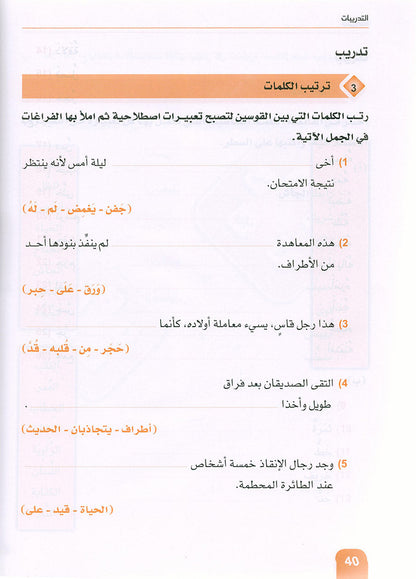 التدريبات
تدريب
3 ترتيب الكلمات
رتب الكلمات التي بين القوسين لتصبح تعبيرات اصطلاحية ثم املأ بها الفراغات
في الجمل الآتية.
1) أخى ليلة أمس لأنه ينتظر
نتيجة الامتحان.
(جَفن - يَغمض - لَم - لَهُ)
2) هذه المعاهدة لم ينفِّذ بنودها أحد
من الأطراف.
(وَرَق - عَلَى - حِبر)
3) هذا رجل قاسٍ، يسيء معاملة أولاده، كأنما
(حَجَر - مِن - قلبه - قُدَّ)
4) التقى الصديقان بعد فراق
طويل وأخذا .
(أطراف - يتجاذبان - الحديث)
5) وجد رجال الإنقاذ خمسة أشخاص
عند الطائرة المحطمة.
(الحياة - قيد - على)
40